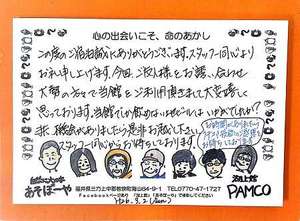 心の出会いこそ、命のあかし
この度のご宿泊誠にありがとうございます。スタッフ一同心より
お礼申し上げます。今回、ご友人様をお誘い合わせ
大勢の方々で当館をご利用頂きまして大変嬉しく
思っております。当館でしか飲めないはいかがでしたか?
又、機会がありましたら是非お越し下さい。
スタッフ一同心からお待ちしております。
あそぼーや
福井県三方上中郡若狭町海山64-9-1 TEL0770-47-1727
Facebookページあり
海上館
PAMCO